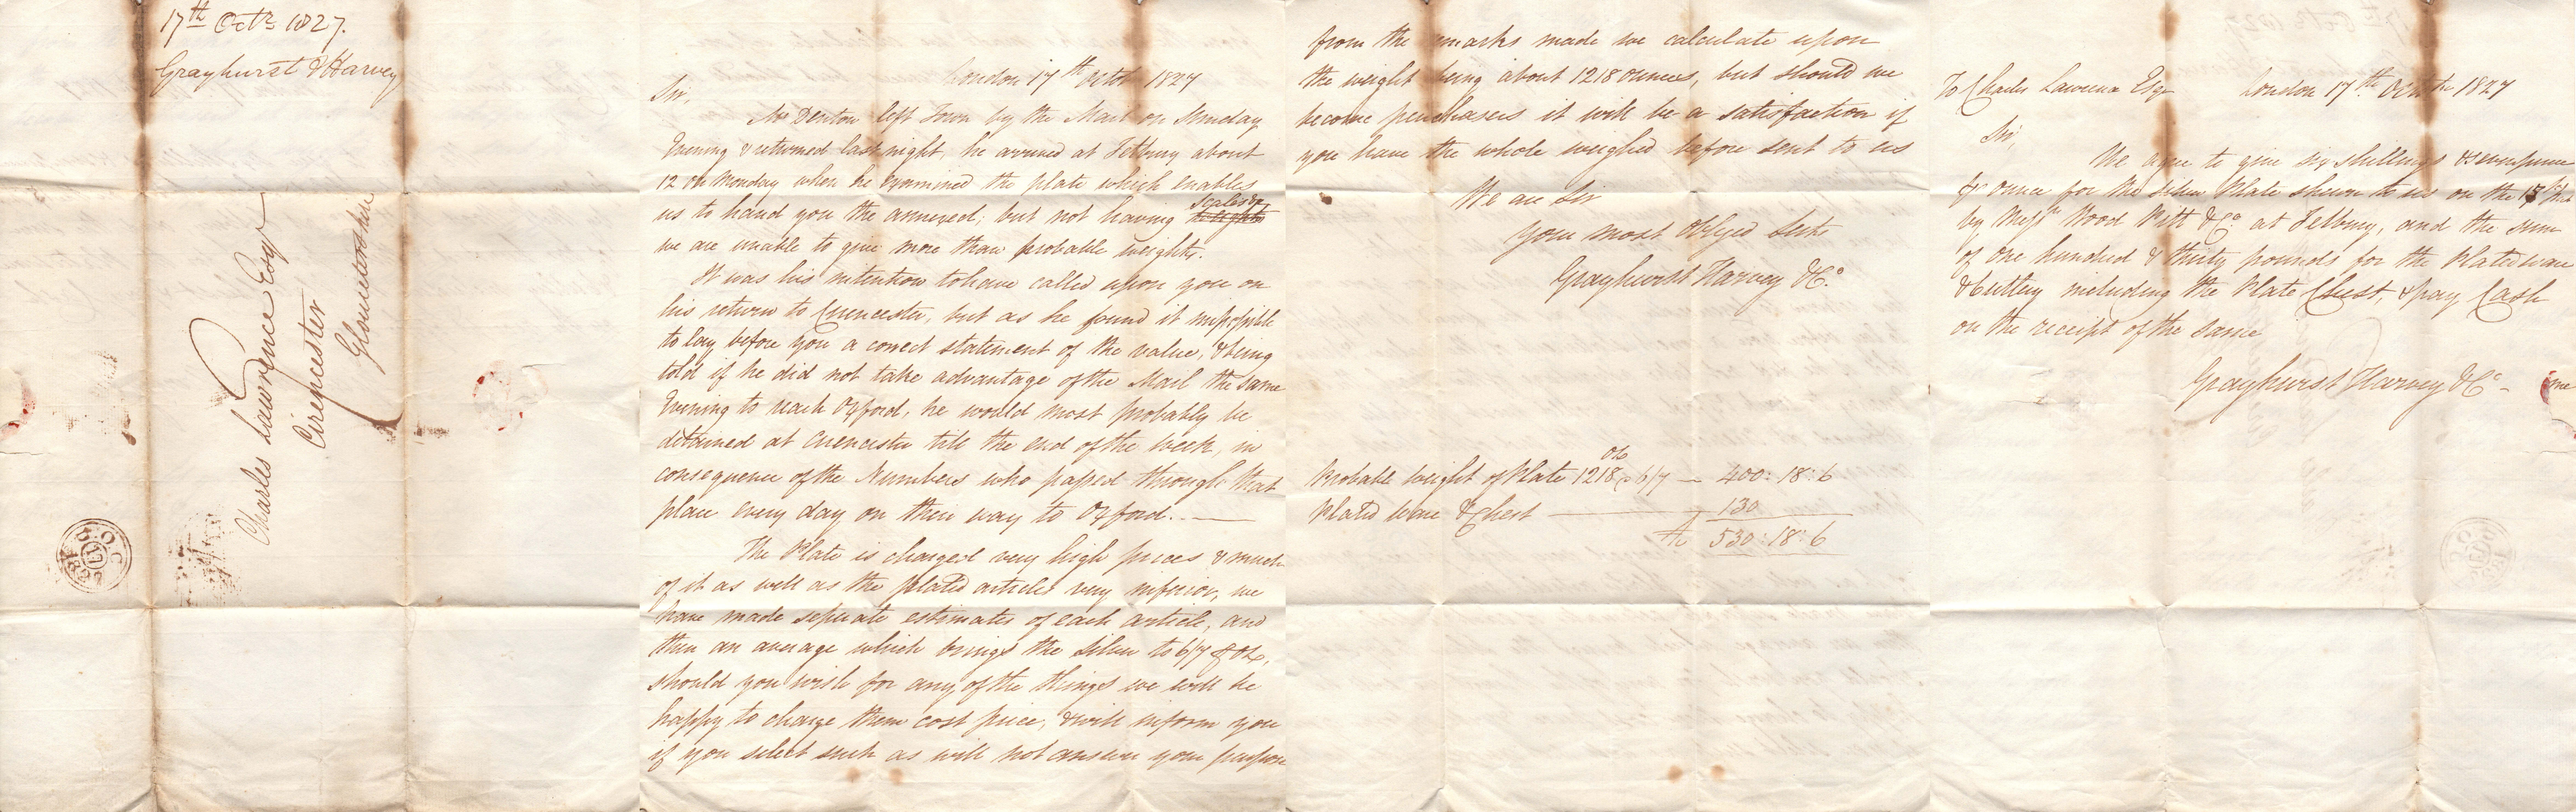 17th Octr. 1827.
Grayhurst & Harvey
Charles Lawrence Esqr
Cirencester
Gloucestershire
OC
17
1827
London 17th Octob 1827
Sir,
Mr Denton left Town by the Mail on Sunday
Evening & returned last night, he arrived at Tetbury about
12 on Monday when he examined the plate which enables
us to hand you the annexed, but not having scales &
we are unable to give more than probable weights.
It was his intention to have called upon you on
his return to Cirencester, but as he found it impossible
to lay before you a correct statement of the value, & being
told if he did not take advantage of the Mail the same
Evening to reach Oxford, he would most probably be
detained at Cirencester till the end of the week, in
consequence of the Numbers who passed through that
place every day on their way to Oxford. —
The Plate is charged very high prices & much
of it as well as the plated articles very inferior, we
have made seperate estimates of each article, and
then an average which brings the Silver to 6/7 ℔ oz,
should you wish for any of the things we will be
happy to charge them cost price, & will inform you
if you select such as will not answer your purpose
from the remarks made we calculate upon
the weight being about 1218 ounces, but should we
become purchasers it will be a satisfaction if
you have the whole weighed before sent to us
We are Sir
Your most Obliged Servts
Grayhurst Harvey & Co.
oz
Probable weight of Plate 1218 @ 6/7 — 400: 18: 6
Plated Ware & Chest — 130
£ 530: 18: 6
To Charles Lawrence Esqr London 17th Octobr 1827
Sir,
We agree to give six shillings & sevenpence
℔ ounce for the Silver Plate shewn to us on the 15th
by Messrs Wood Pitt & Co. at Tetbury, and the sum
of One hundred & thirty pounds for the Plated ware
& Cutlery including the Plate Chest, & pay Cash
on the receipt of the same
Grayhurst Harvey & Co.